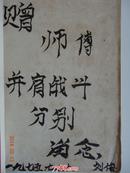 赠
师傅
并肩战斗
分别
留念
一九七五.
刘俊